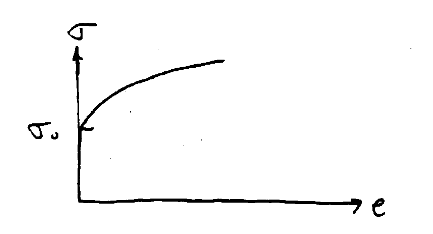 σ
σ₀
e